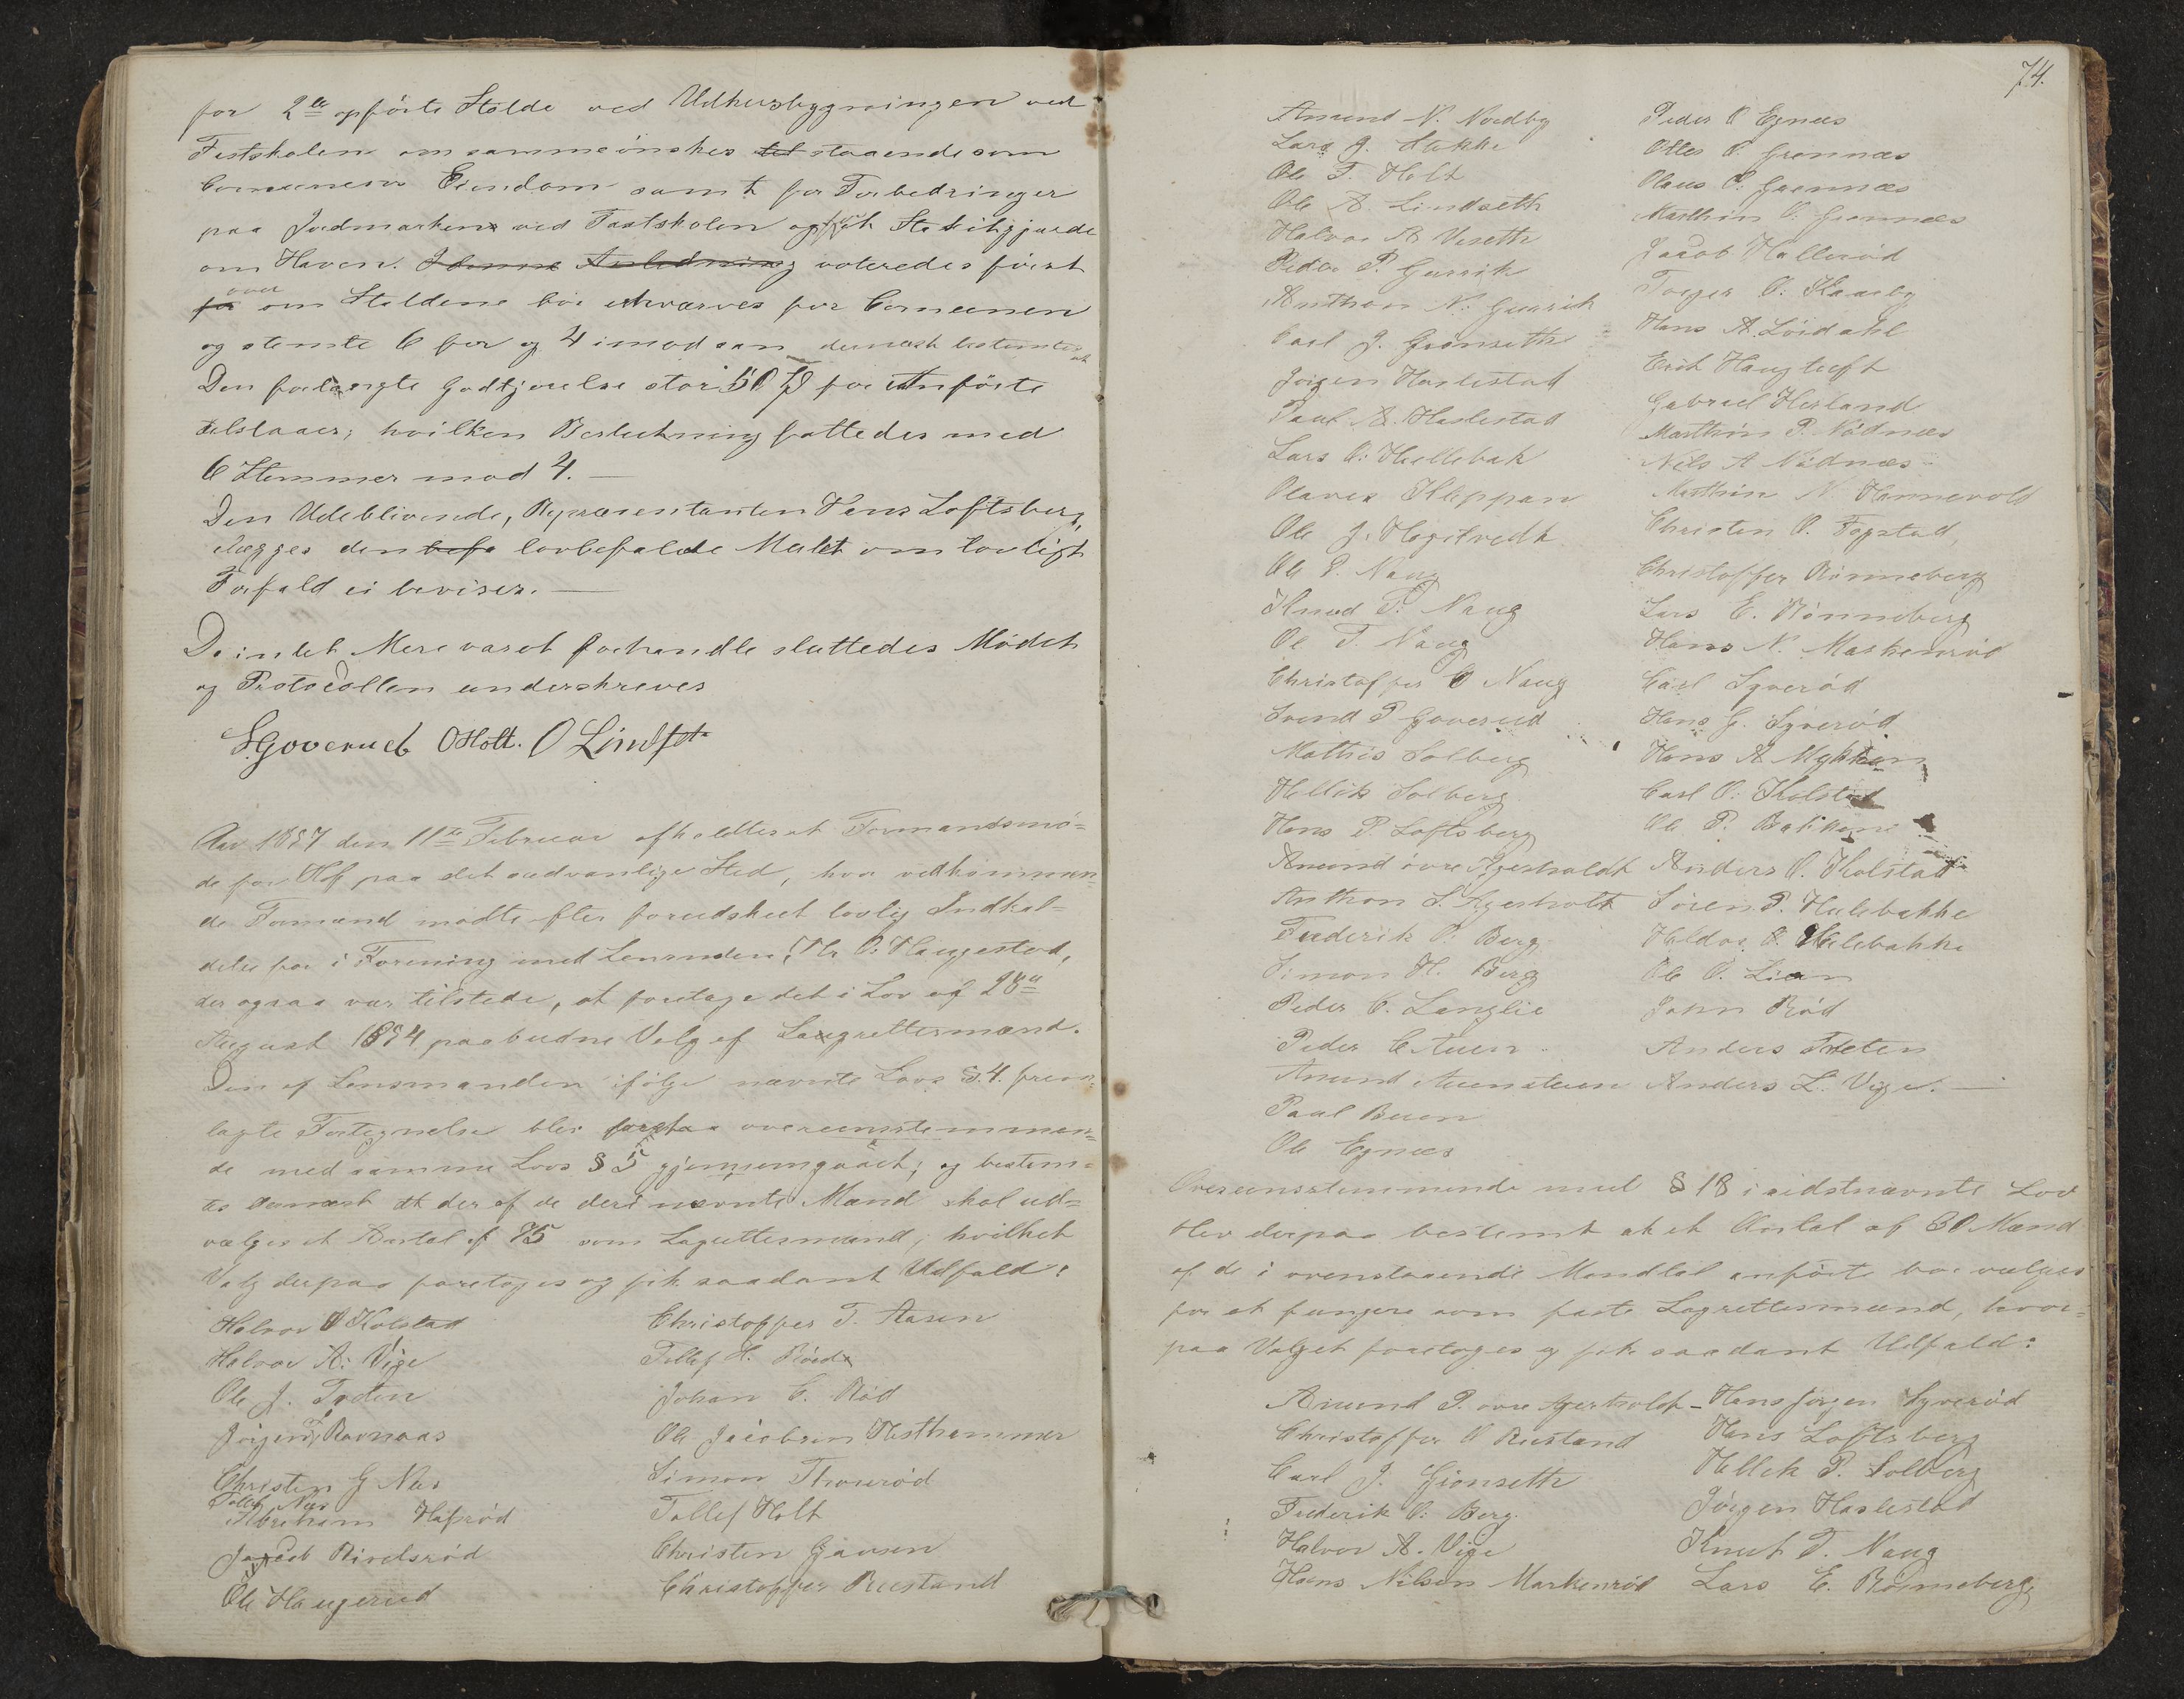 for 2de opførte Stolde ved Udhusbygningen ved
Fastskolen om samme ønskes til staaende som
Comunens Eiendom samt for Forbedringer
paa Jordmarken ved Fastskolen og for et Stakitgjærde
om Haven. I denne Anledning voteredes først
over
for om Stoldene bør erhværves for Comunen
og stemte 6 for og 4 imod samt dernæst bestemtes at
Den forlangte Godtgjørelse stor 50 for Anførte
tilstaaes, hvilken Beslutning fattedes med
6 Stemmer mod 4. —
Den Udeblivende, Repræsentanten Hans Loftsberg,
ilægges den befa lovbefalede Mulct om lovligt
Forfald ei bevises. —
Da intet Mere var at forhandle sluttedes Mødet
og Protocollen underskreves
S. Goverud OHolt. O Lindset
Aar 1857 den 11te Februar afholdtes et Formandsmø=
de for Hof paa det sædvanlige Sted, hvor vedkommen=
de Formænd mødte efter forudskeet lovlig Indkal=
delse for i Forening med Lensmden, Hr. O: Haugestad,
der ogsaa var tilstede, at foretage det i Lov af 28de
August 1854 paabudne Valg af Laugrettesmænd.
Den af Lensmanden ifølge nævnte Lovs §.4. frem=
lagte Fortegnelse blev overeensstemmen=
de med samme Lovs § 5 gjennemgaaet; og bestem=
tes dernæst at der af de deri nævnte Mænd skal ud=
vælges et Antal af 75 som Lagrettesmænd; hvilket
Valg derpaa foretoges og fik saadant Udfald:
Halvor O Kolstad
Halvor A: Vige
Ole J. Tveten
Jørgen Ravnaas
Christen G Næs
Tollef Næs
Abraham Hafsrød
Jacob Rivelsrød
Ole Haugerud
Christoffer T. Aasen
Tollef H. Røed
Johan C. Rød
Ole Jacobsen Hesthammer
Simon Thorerød
Tollef Holt
Christen Gausen
Christoffer Ruestand
74.
Amund N. Nordby
Lars G. Hakke
Ole T. Holt
Ole A. Lindseth
Halvor A Veseth
Peder P. Gursik
Anthon N. Gursik
Carl J. Grønseth
Jørgen Haslestad
Paul A. Haslestad
Lars O: Hullebak
Olaves Kleppan
Ole J. Hagtvedt
Ole P. Naug
Knud T. Naug
Ole T. Naug
Christoffer O Naug
Svend P Goverud
Mathis Solberg
Hellik Solberg
Hans P. Loftsberg
Amund øvre Agerholdt
Anthon L. Agerholt
Frederik O: Berg
Simon H. Berg
Peder C. Langlie
Peder C Auen
Amund Auenstuen
Paul Buen
Ole Egnæs
Peder O Egnæs
Otter O. Grennæs
Olaus O: Grennæs
Marthin O: Grennæs
Jacob Hallerød
Torger O: Kaasby
Hans A. Lørdahl
Erik Haugtuft
Gabriel Hesland
Marthin P. Nødnæs
Nils A Nødnæs
Marthin N. Hannevold
Christen O. Fogstad,
Christoffer Rønneberg
Lars E. Rønneberg
Hans N. Markenrød
Carl Syverød
Hans J. Syverød
Hans A Myhren
Carl O: Kolstad
Ole P. Bakkene
Anders O. Kolstad
Søren P. Hulebakke
Haldor O. Hulebakke
Ole O. Lian
John Rød
Anders Tveten
Anders L. Vige. —
Overeensstemmende med § 18 i sidstnævnte Lov
blev derpaa bestemt at et Antal af 30 Mænd
af de i ovenstaaende Mandtal anførte bør vælges
for at fungere som faste Lagrettesmænd, hvor=
paa Valget foretoges og fik saadant Udfald:
Amund P. øvre Agerholdt –
Christoffer O Ruestand
Carl J. Grønseth
Frederik O: Berg.
Halvor A. Vige
Hans Nilsen Markenrød
Hans Jørgen Syverød
Hans Loftsberg
Hellik P. Solberg
Jørgen Haslestad
Knut T. Naug
Lars E. Rønneberg,